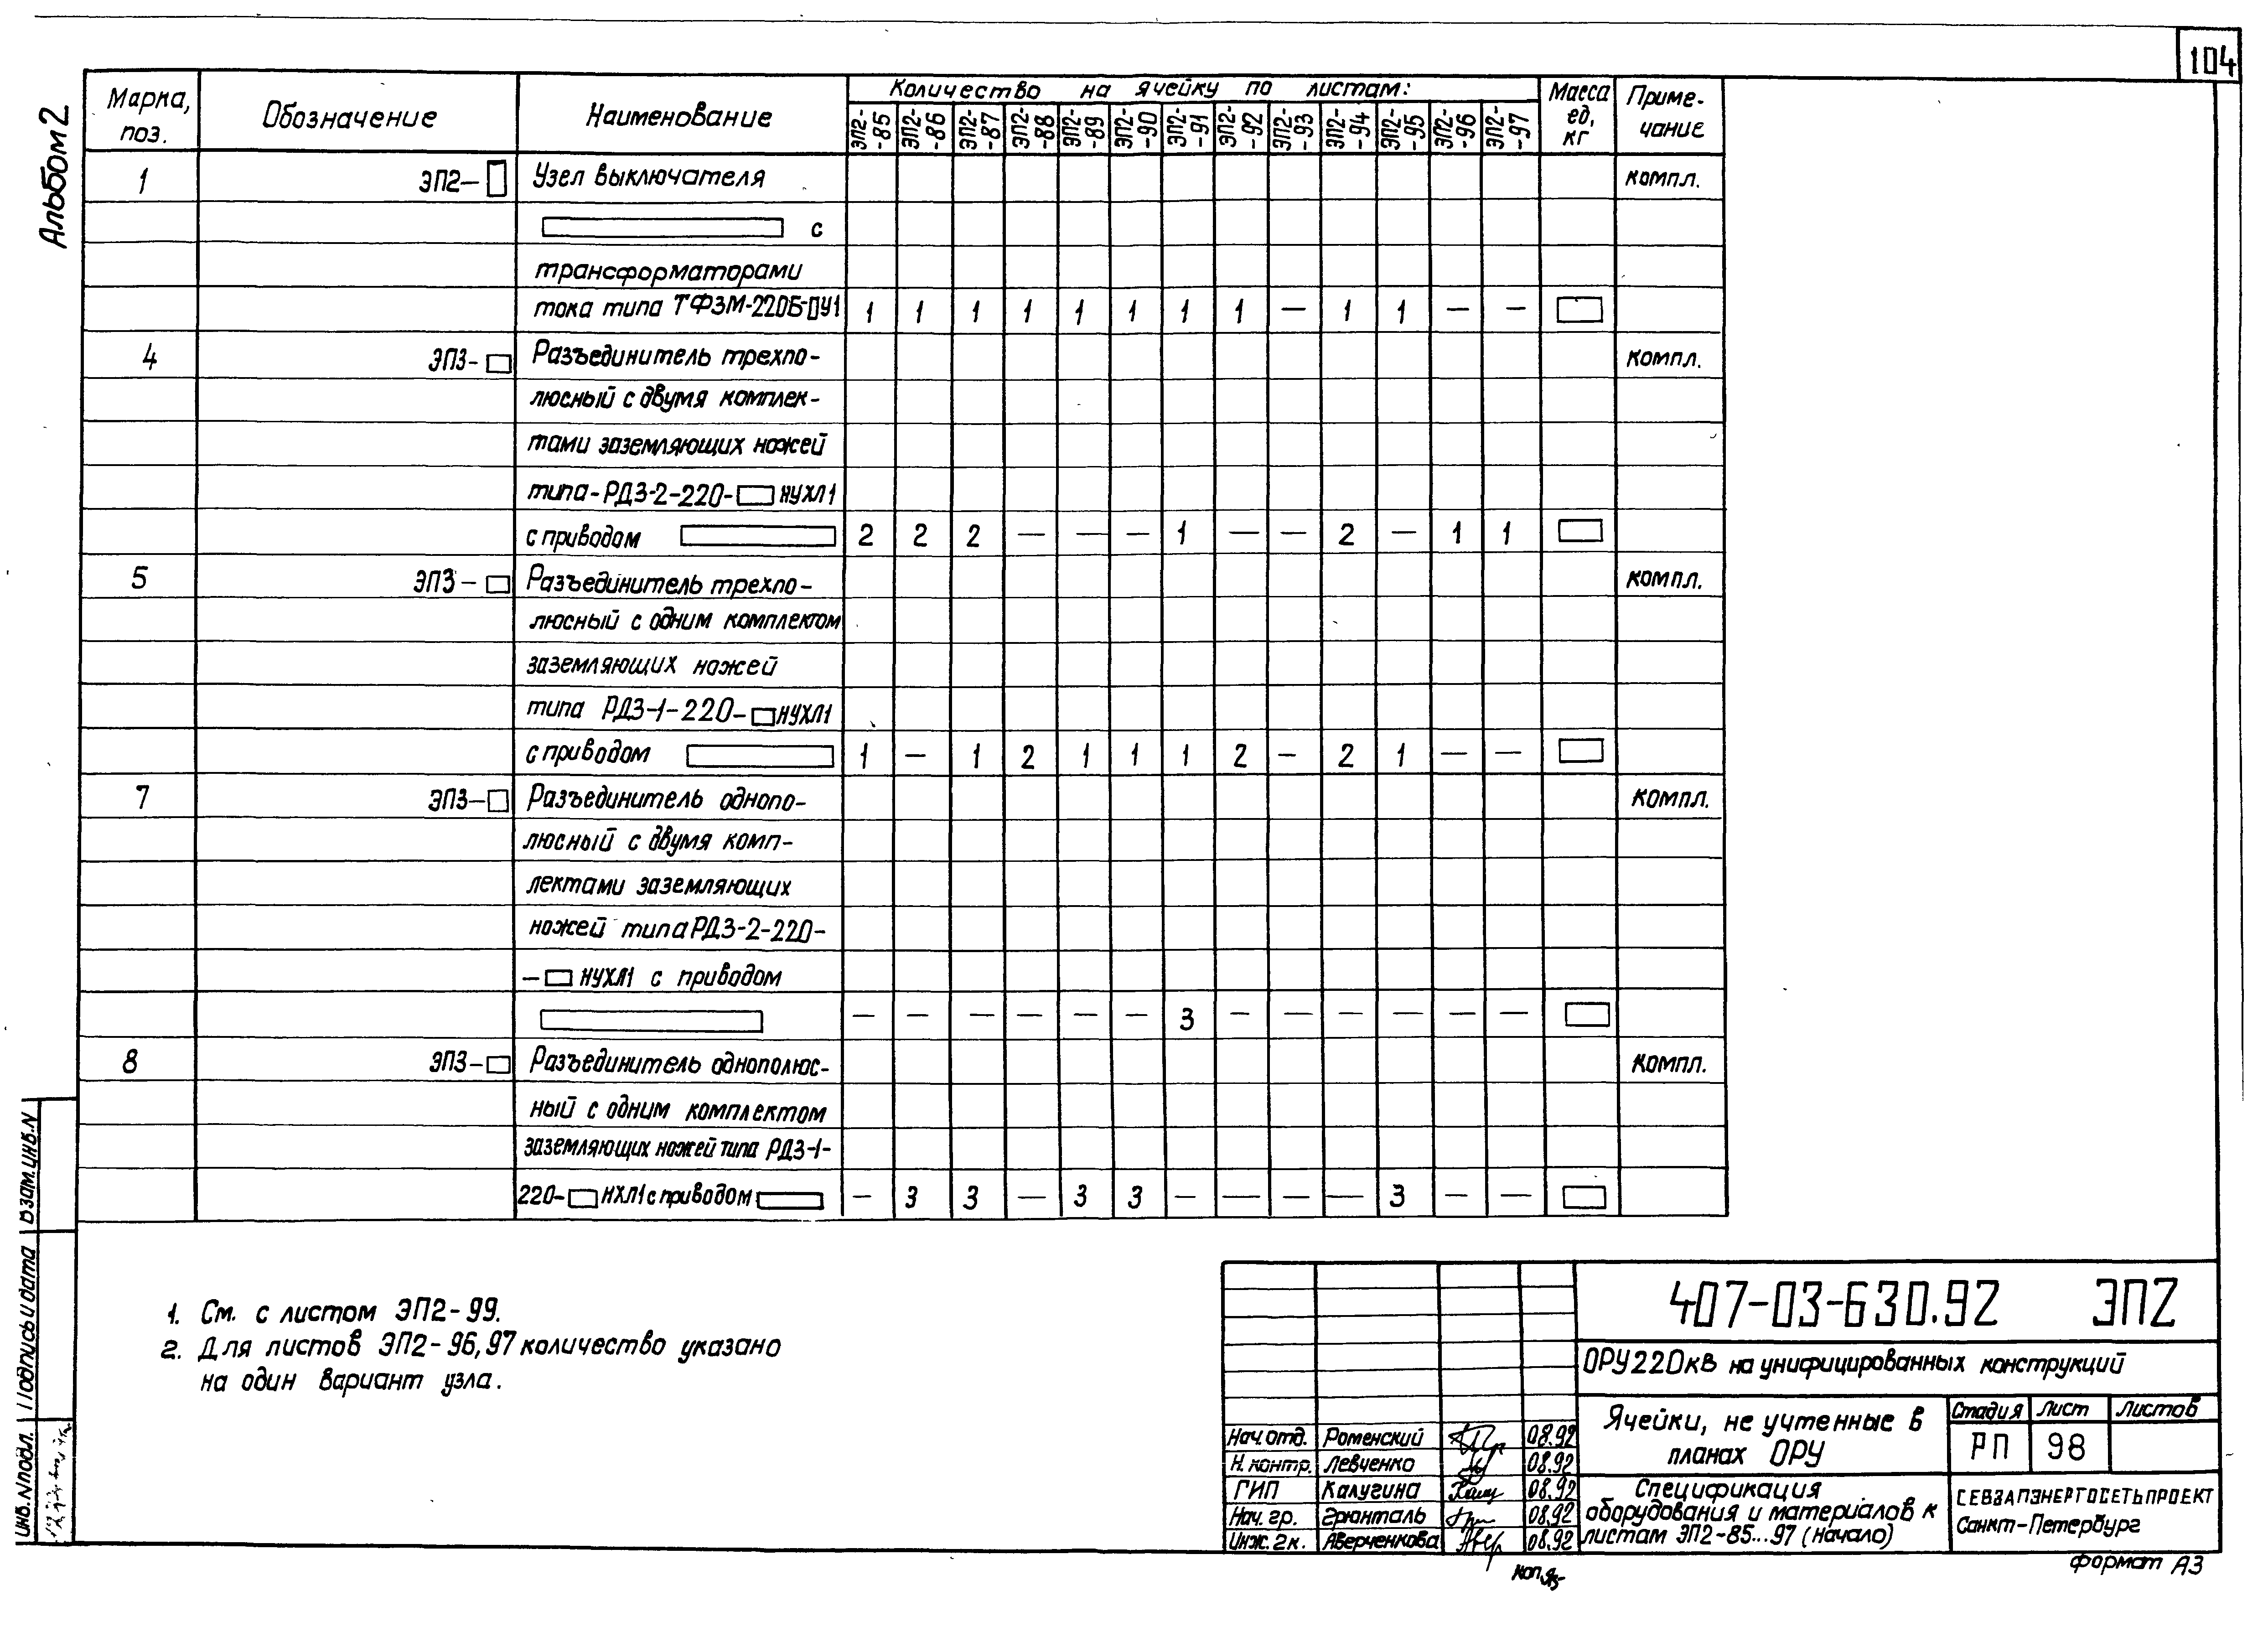 104
Альбом 2
Марка, поз. Обозначение Наименование Количество на ячейку по листам: Масса ед, кг Приме-чание
ЭП2-85 ЭП2-86 ЭП2-87 ЭП2-88 ЭП2-89 ЭП2-90 ЭП2-91 ЭП2-92 ЭП2-93 ЭП2-94 ЭП2-95 ЭП2-96 ЭП2-97
1 ЭП2- Узел выключателя компл.
с
трансформаторами
тока типа ТФЗМ-220Б-ОУ1 1 1 1 1 1 1 1 1 — 1 1 — —
4 ЭП3- Разъединитель трехпо- компл.
люсный с двумя комплек-
тами заземляющих ножей
типа-РДЗ-2-220- НУХЛ1
с приводом 2 2 2 — — — 1 — — 2 — 1 1
5 ЭП3- Разъединитель трехпо- компл.
люсный с одним комплектом
заземляющих ножей
типа РДЗ-1-220- НУХЛ1
с приводом 1 — 1 2 1 1 1 2 — 2 1 — —
7 ЭП3- Разъединитель однопо- компл.
люсный с двумя комп-
лектами заземляющих
ножей типа РДЗ-2-220-
- НУХЛ1 с приводом
— — — — — — 3 — — — — — —
8 ЭП3- Разъединитель однополюс- компл.
ный с одним комплектом
заземляющих ножей типа РДЗ-1-
220- НХЛ1 с приводом — 3 3 — 3 3 — — — — 3 — —
1. См. с листом ЭП2-99.
2. Для листов ЭП2-96,97 количество указано
на один вариант узла.
Взам.инв.N
Подпись и дата
Инв.Nподл.
407-03-630.92 ЭП2
ОРУ 220кВ на унифицированных конструкций
Ячейки, не учтенные в
планах ОРУ
Стадия Лист Листов
РП 98
Нач.отд. Роменский 08.92
Н.контр. Левченко 08.92
ГИП Калугина 08.92
Нач.гр. Грюнталь 08.92
Инж.2к. Аверченкова 08.92
Спецификация
оборудования и материалов к
листам ЭП2-85...97 (начало)
СЕВЗАПЭНЕРГОСЕТЬПРОЕКТ
Санкт-Петербург
формат А3